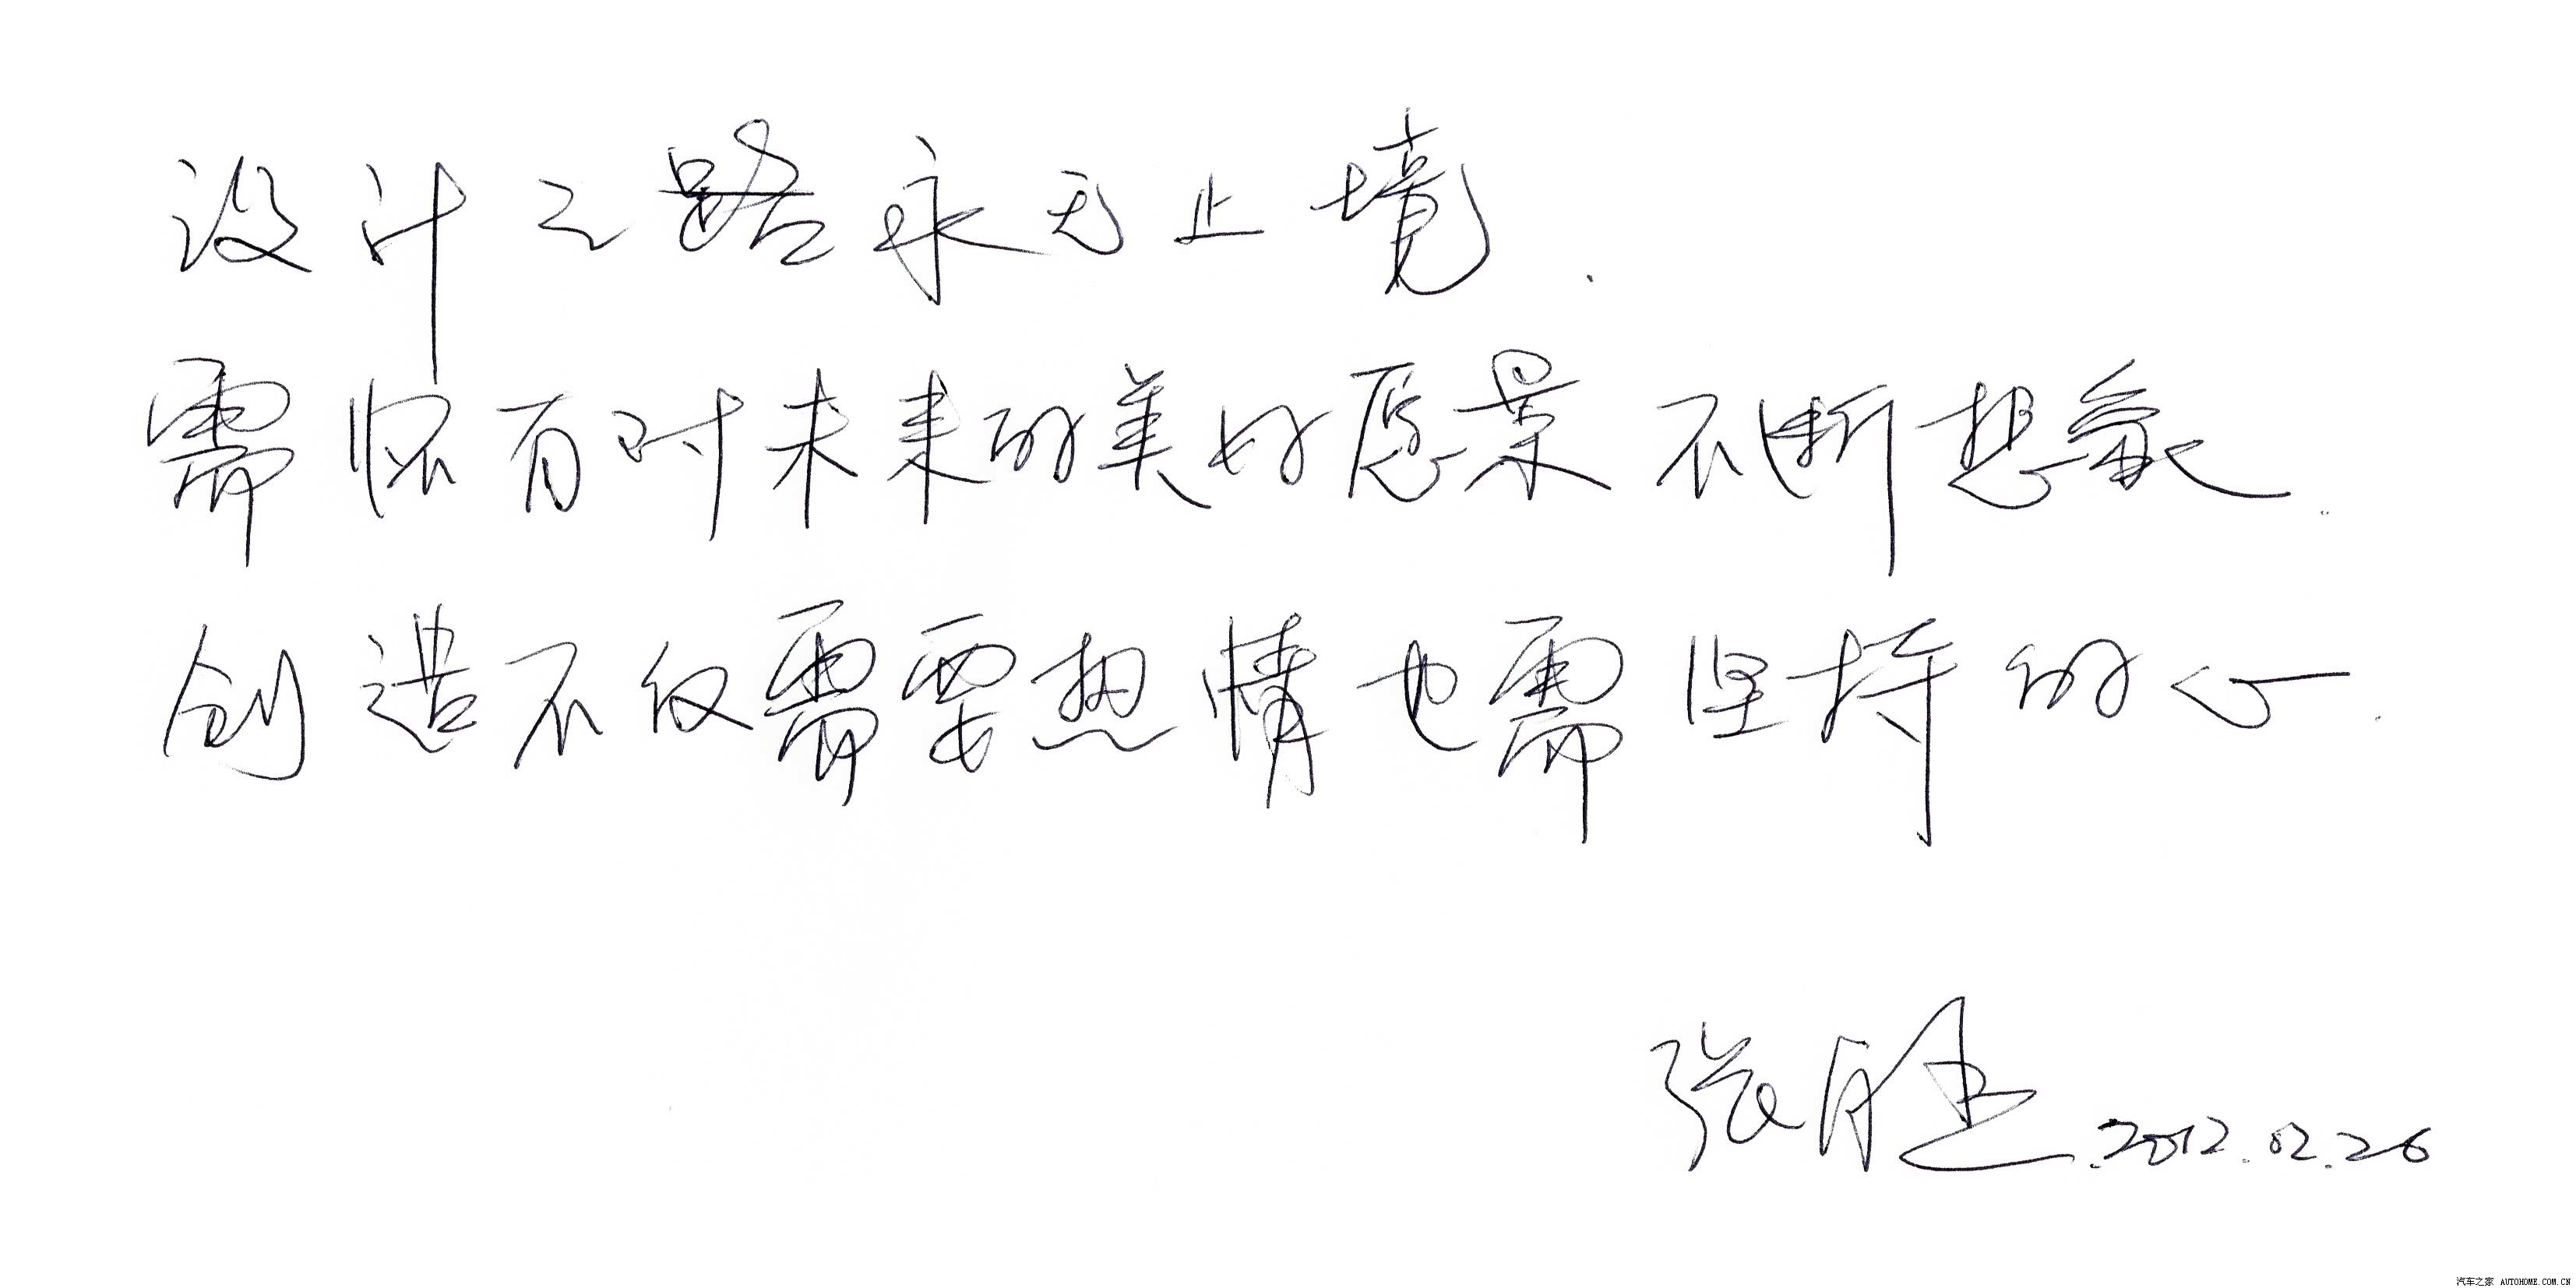 设计之路永无止境.
需怀有对未来的美好愿景不断想象.
创造不仅需要热情也需坚持的心.
张胜.2012.02.26
汽车之家 AUTOHOME.COM.CN